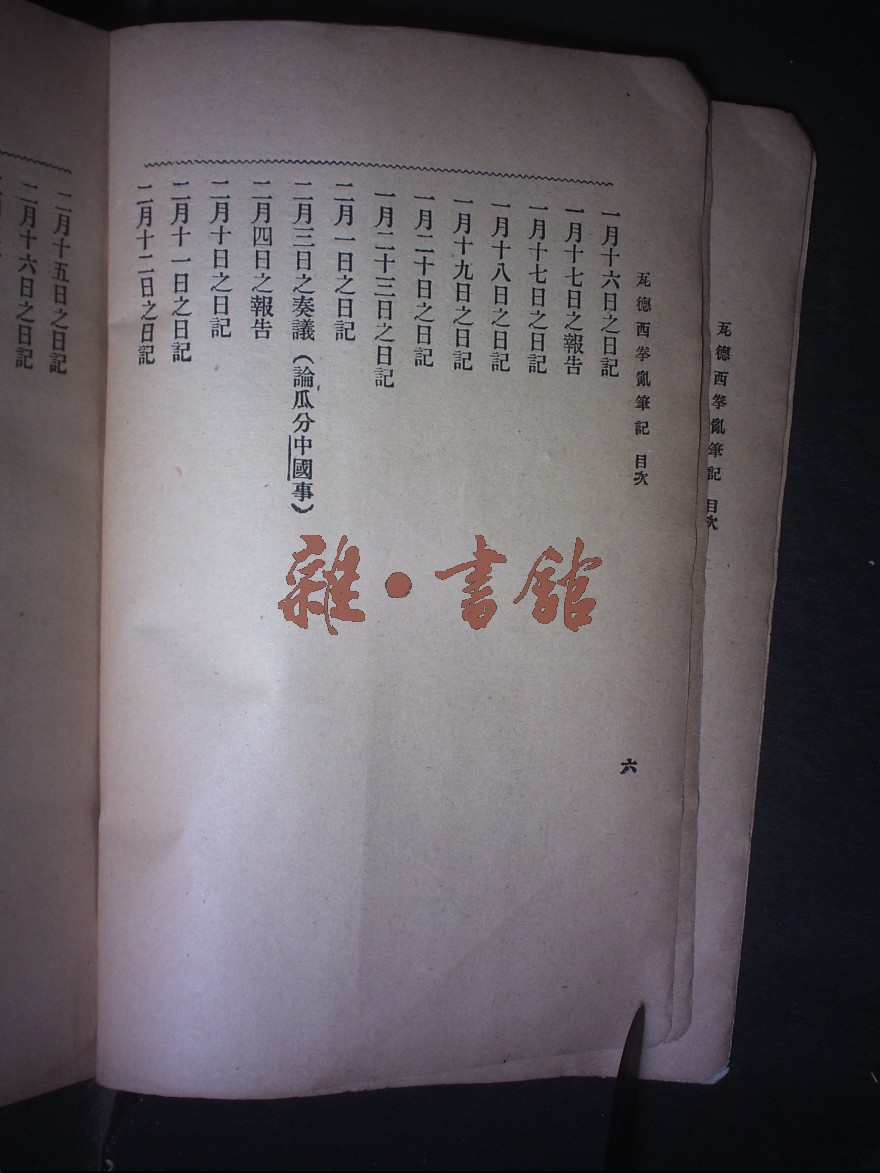 瓦德西拳亂筆記 目次
瓦德西拳亂筆記 目次
六
一月十六日之日記
一月十七日之報告
一月十七日之日記
一月十八日之日記
一月十九日之日記
一月二十日之日記
一月二十三日之日記
二月一日之日記
二月三日之奏議（論瓜分中國事）
二月四日之報告
二月十日之日記
二月十一日之日記
二月十二日之日記
二月十五日之日記
二月十六日之日記
雜·書館